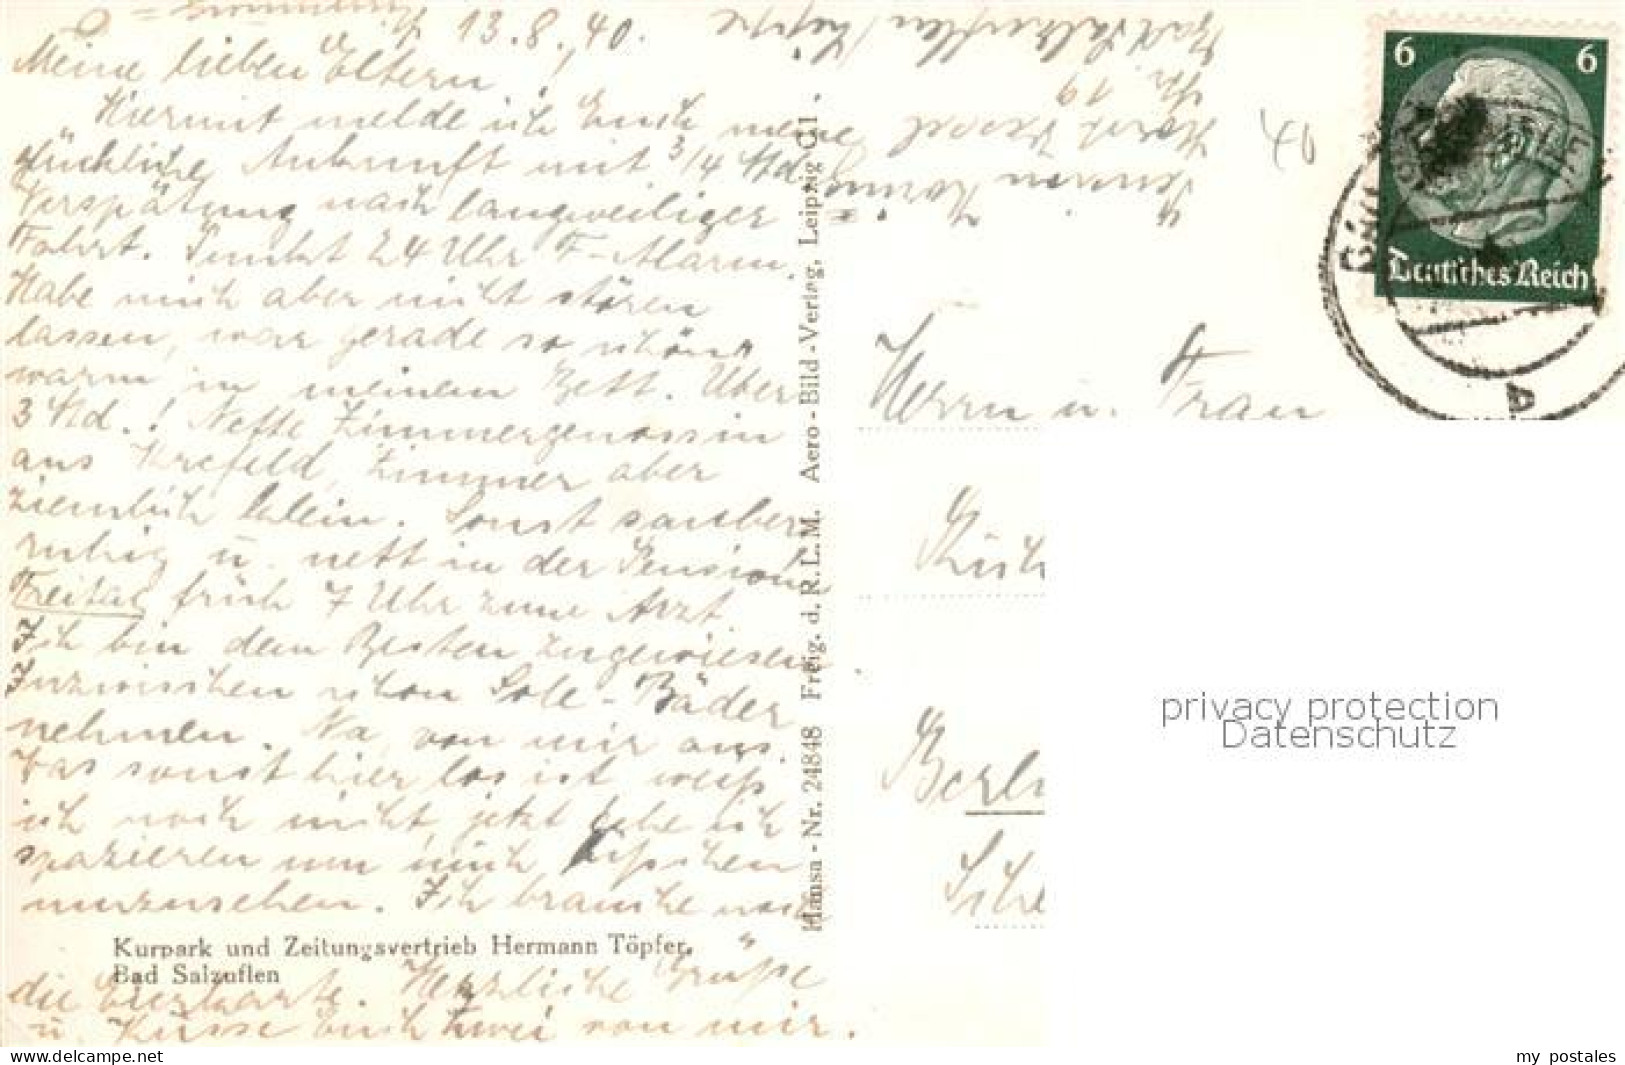 13.8.40.
Meine lieben Eltern!
Hiermit melde ich Euch meine
glückliche Ankunft mit 3/4 Std.
Verspätung nach langweiliger
Fahrt. Punkt 24 Uhr F-Alarm.
Habe mich aber nicht stören
lassen, war gerade so schön
warm in meinem Bett. Über
3 Std.! Nette Zimmergenossin
aus Krefeld, Zimmer aber
ziemlich klein. Sonst sauber,
ruhig u. nett in der Pension.
Freitag früh 7 Uhr zum Arzt.
Ich bin dem Besten zugewiesen
Inzwischen schon Sole-Bäder
nehmen. Na, von mir aus.
Was sonst hier los ist weiß
ich noch nicht, jetzt gehe ich
spazieren um mich bißchen
umzusehen. Ich brauche noch
die Eierkarte. Herzliche Grüße
u. Küsse Euch Zwei von mir.
Kurpark und Zeitungsvertrieb Hermann Töpfer,
Bad Salzuflen
Hansa-Nr. 24848 Freig. d. R.L.M. Aero-Bild-Verlag, Leipzig C1.
Bad Salzuflen/Lippe
Str. 19
Horst Wessel
Pension
6 6
Deutsches Reich
Herrn u. Frau
Berl
privacy protection
Datenschutz
the-yellow-ercado.com
my postales